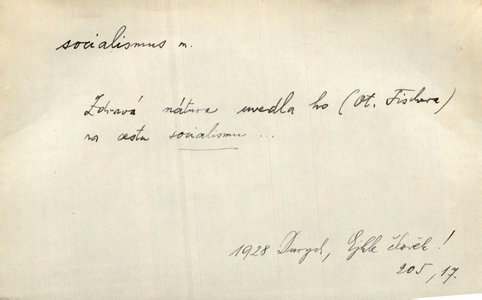 socialismus m.
Zdravá nátura uvedla ho (Ot. Fischera)
na cestu socialismu ...
1928 Durych, Ejhle člověk!
205, 17.